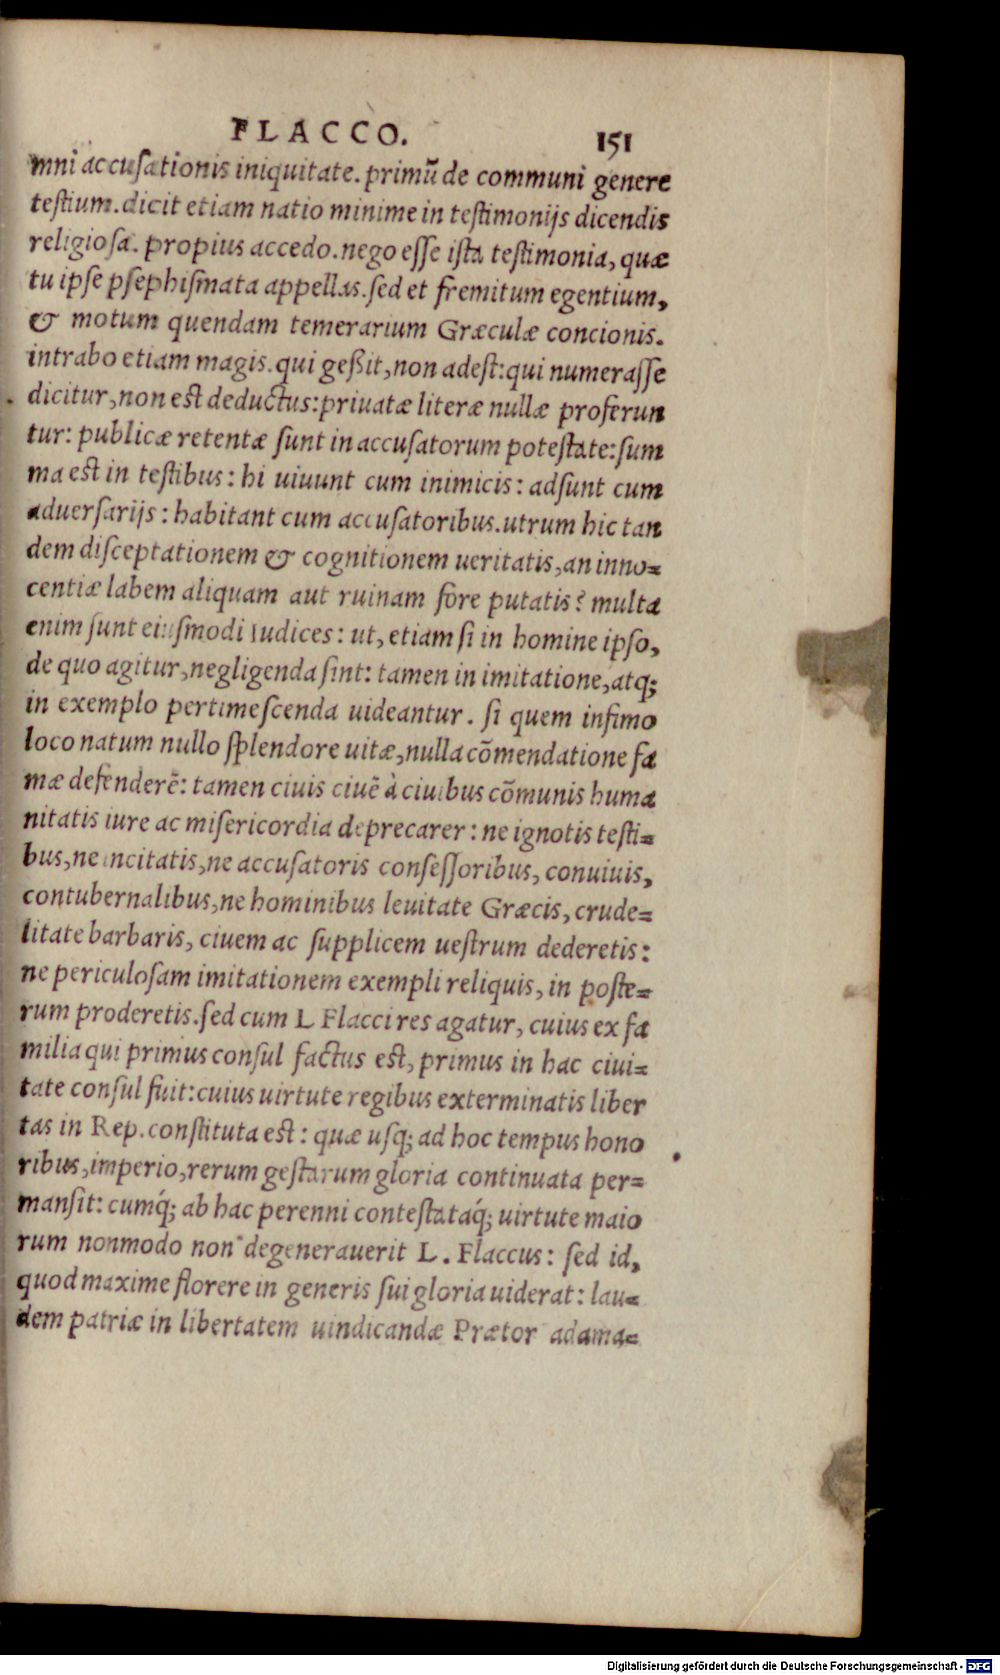 FLACCO. 151
mni accuſationis iniquitate. primū de communi genere
teſtium. dicit etiam natio minime in teſtimonijs dicendis
religioſa. propius accedo. nego eſſe iſta teſtimonia, quæ
tu ipſe pſephiſmata appellas. ſed et fremitum egentium,
& motum quendam temerarium Græculæ concionis.
intrabo etiam magis. qui geßit, non adeſt: qui numeraſſe
dicitur, non eſt deductus: priuatæ literæ nullæ proferun
tur: publicæ retentæ ſunt in accuſatorum poteſtate: ſum
ma eſt in teſtibus: hi uiuunt cum inimicis: adſunt cum
aduerſarijs: habitant cum accuſatoribus. utrum hic tan
dem diſceptationem & cognitionem ueritatis, an inno=
centiæ labem aliquam aut ruinam fore putatis? multa
enim ſunt eiuſmodi Iudices: ut, etiam ſi in homine ipſo,
de quo agitur, negligenda ſint: tamen in imitatione, atq;
in exemplo pertimeſcenda uideantur. ſi quem infimo
loco natum nullo ſplendore uitæ, nulla cōmendatione fa
mæ defenderē: tamen ciuis ciuē à ciuibus cōmunis huma
nitatis iure ac miſericordia deprecarer: ne ignotis teſti=
bus, ne incitatis, ne accuſatoris conſeſſoribus, conuiuis,
contubernalibus, ne hominibus leuitate Græcis, crude=
litate barbaris, ciuem ac ſupplicem ueſtrum dederetis:
ne periculoſam imitationem exempli reliquis, in poſte=
rum proderetis. ſed cum L Flacci res agatur, cuius ex fa
milia qui primus conſul factus eſt, primus in hac ciui=
tate conſul fuit: cuius uirtute regibus exterminatis liber
tas in Rep. conſtituta eſt: quæ uſq; ad hoc tempus hono
ribus, imperio, rerum geſtarum gloria continuata per=
manſit: cumq́; ab hac perenni conteſtataq́; uirtute maio
rum nonmodo non degenerauerit L. Flaccus: ſed id,
quod maxime florere in generis ſui gloria uiderat: lau=
dem patriæ in libertatem uindicandæ Prætor adama=
Digitalisierung gefördert durch die Deutsche Forschungsgemeinschaft - DFG